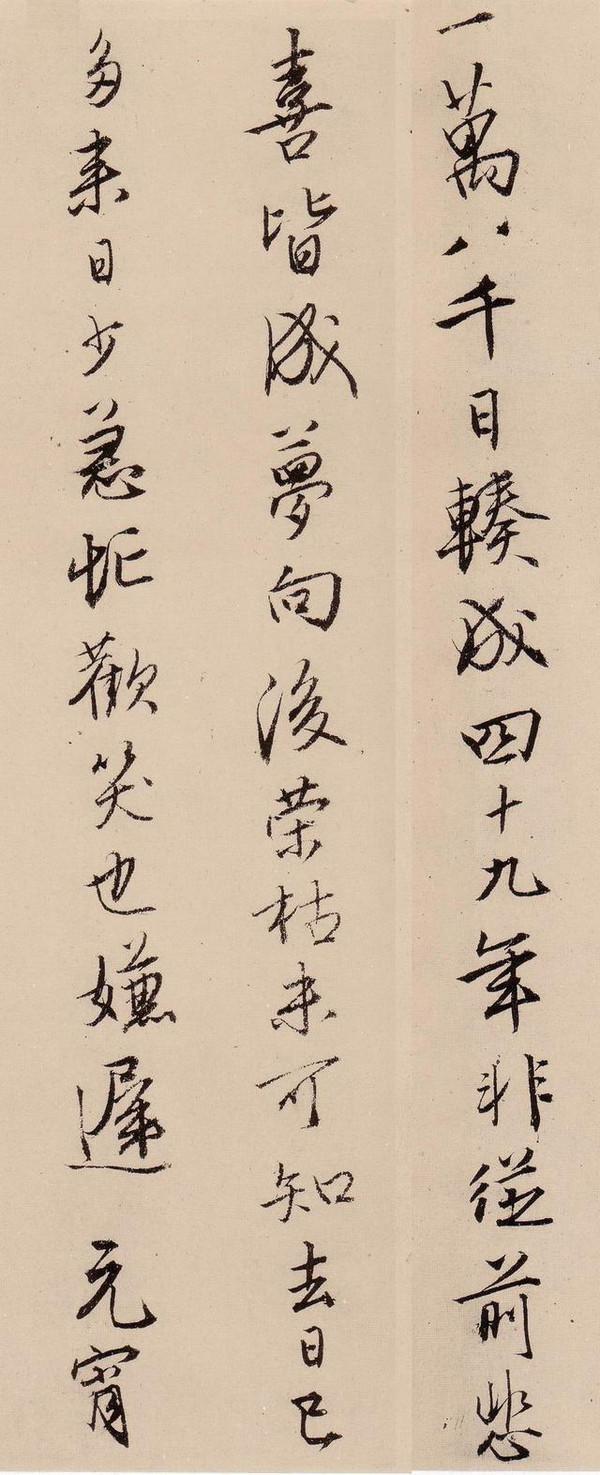 一萬八千日輳成四十九年非從前悲
喜皆成夢向後荣枯未可知去日已
多来日少急忙歡笑也嫌遲 元宵